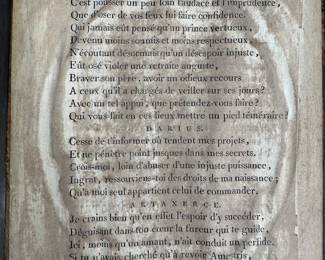 C'est pousser un peu loin l'audace et l'imprudence,
Que d'oser de vos feux lui faire confidence.
Qui jamais eût pensé qu'un prince vertueux,
Devenu moins soumis et moins respectueux,
N'écoutant désormais qu'un désespoir injuste,
Eût osé violer une retraite auguste,
Braver son père, avoir un odieux recours
A ceux qu'il a chargés de veiller sur ses jours?
Avec un tel appui, que prétendez-vous faire?
Qui vous fait en ces lieux mettre un pied téméraire?
DARIUS.
Cesse de t'informer où tendent mes projets,
Et ne pénètre point jusques dans mes secrets.
Crois-moi, loin d'abuser d'une injuste puissance,
Ingrat, ressouviens-toi des droits de ma naissance;
Qu'à moi seul appartient celui de commander.
ARTAXERCE.
Je crains bien qu'en effet l'espoir d'y succéder,
Déguisant dans ton cœur la fureur qui te guide,
Ici, moins qu'un amant, n'ait conduit un perfide.
Si tu n'avais cherché qu'à revoir Amestris,